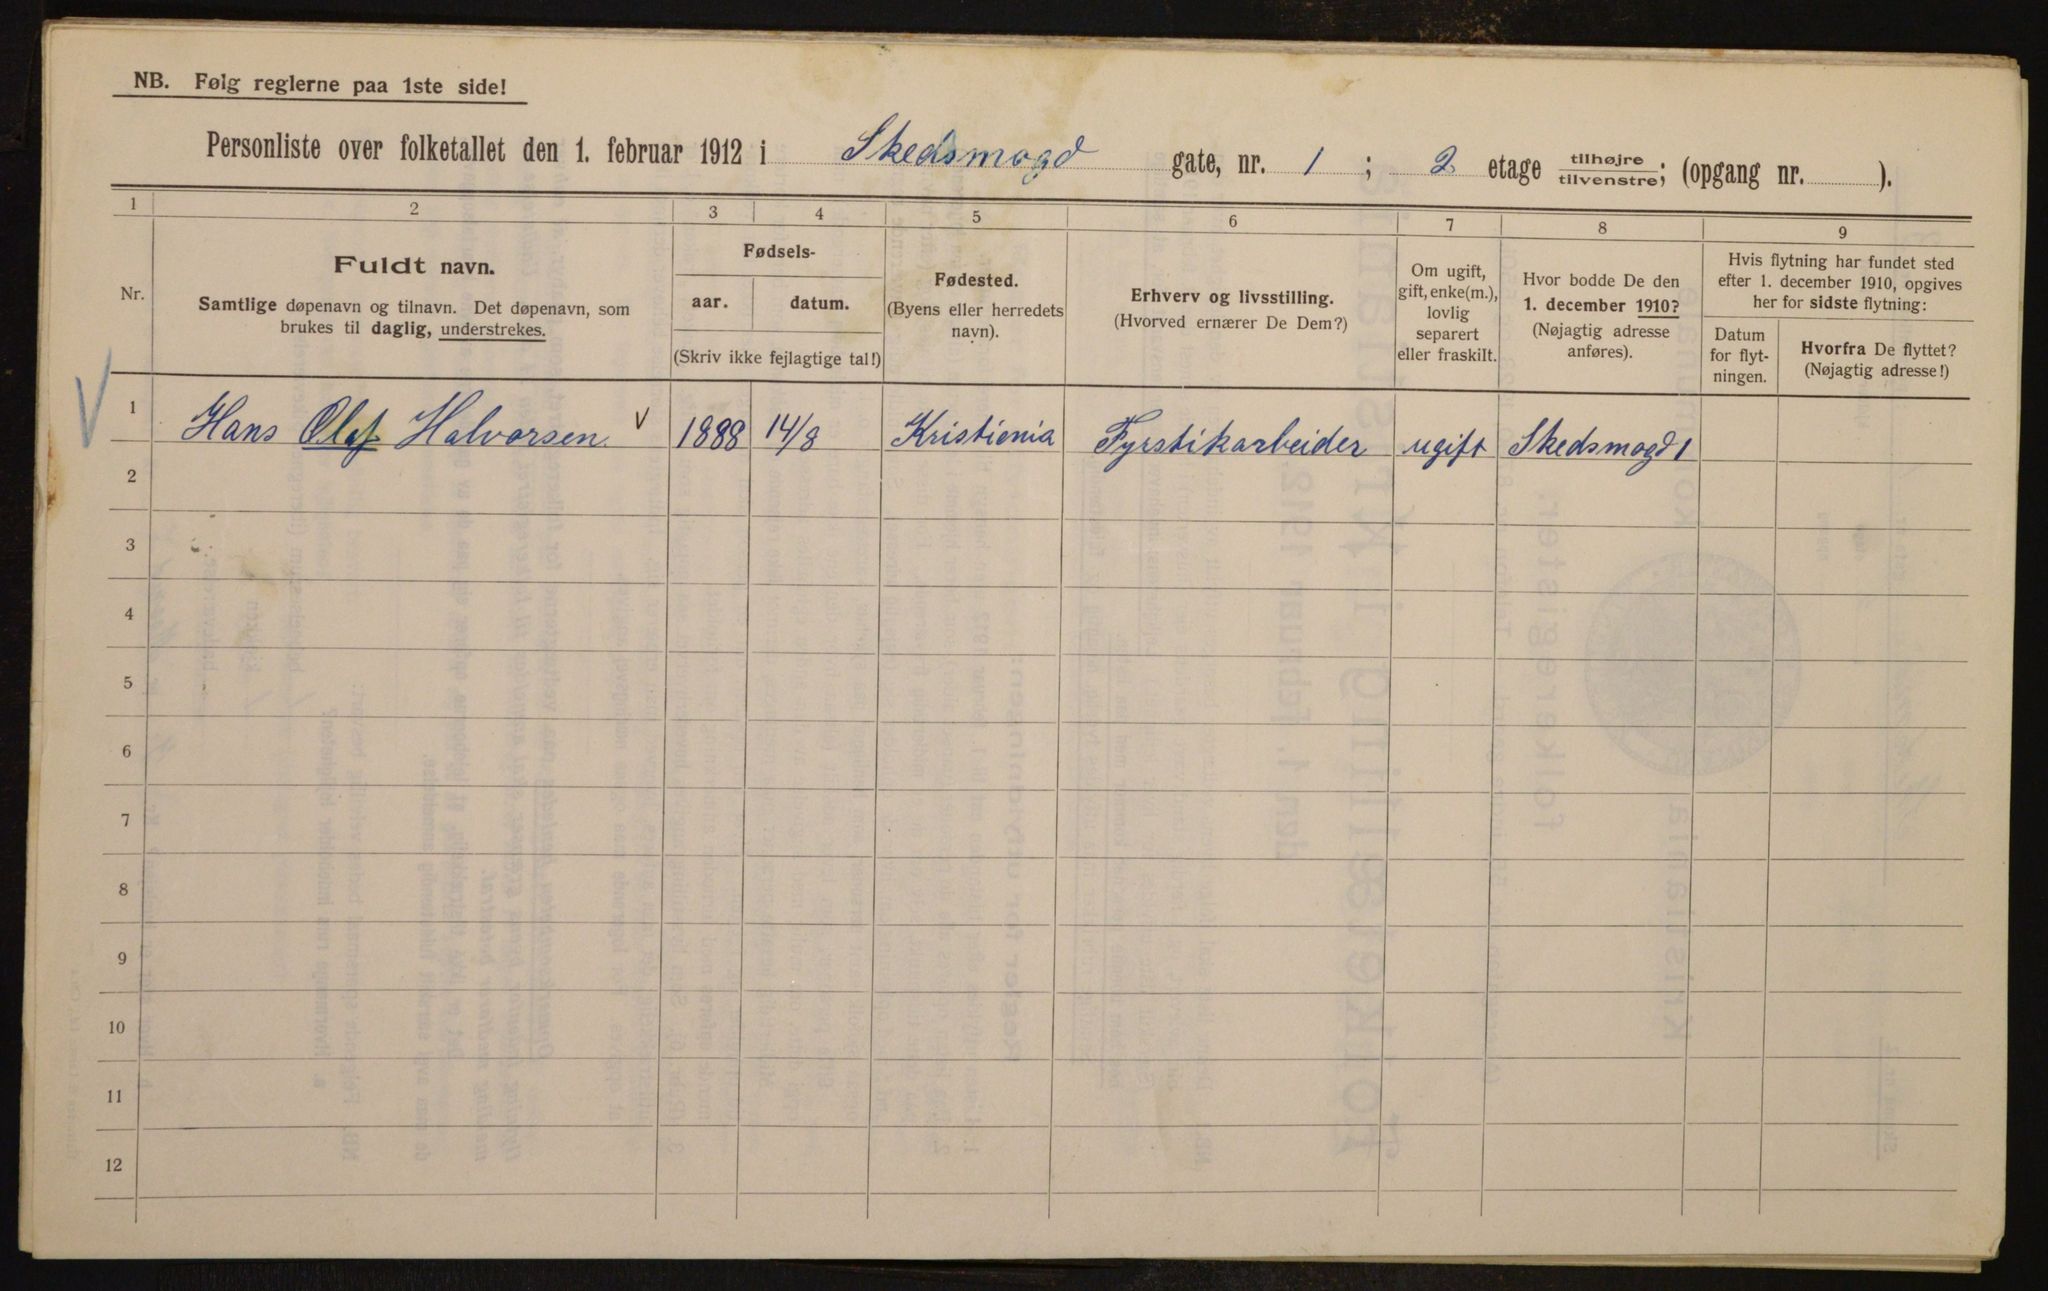 NB. Følg reglerne paa 1ste side!
Personliste over folketallet den 1. februar 1912 i Skedsmogd gate, nr. 1 ; 2. etage tilhøjre/tilvenstre; (opgang nr. ).
1 2 3 4 5 6 7 8 9
Nr.
Fuldt navn.
Samtlige døpenavn og tilnavn. Det døpenavn, som
brukes til daglig, understrekes.
Fødsels-
aar. datum.
(Skriv ikke fejlagtige tal!)
Fødested.
(Byens eller herredets
navn).
Erhverv og livsstilling.
(Hvorved ernærer De Dem?)
Om ugift,
gift, enke(m.),
lovlig
separert
eller fraskilt.
Hvor bodde De den
1. december 1910?
(Nøjagtig adresse
anføres).
Hvis flytning har fundet sted
efter 1. december 1910, opgives
her for sidste flytning:
Datum
for flyt-
ningen.
Hvorfra De flyttet?
(Nøjagtig adresse!)
1 Hans Olaf Halvorsen 1888 14/8 Kristienia Fyrstikarbeider ugift Skedsmogd 1
2
3
4
5
6
7
8
9
10
11
12